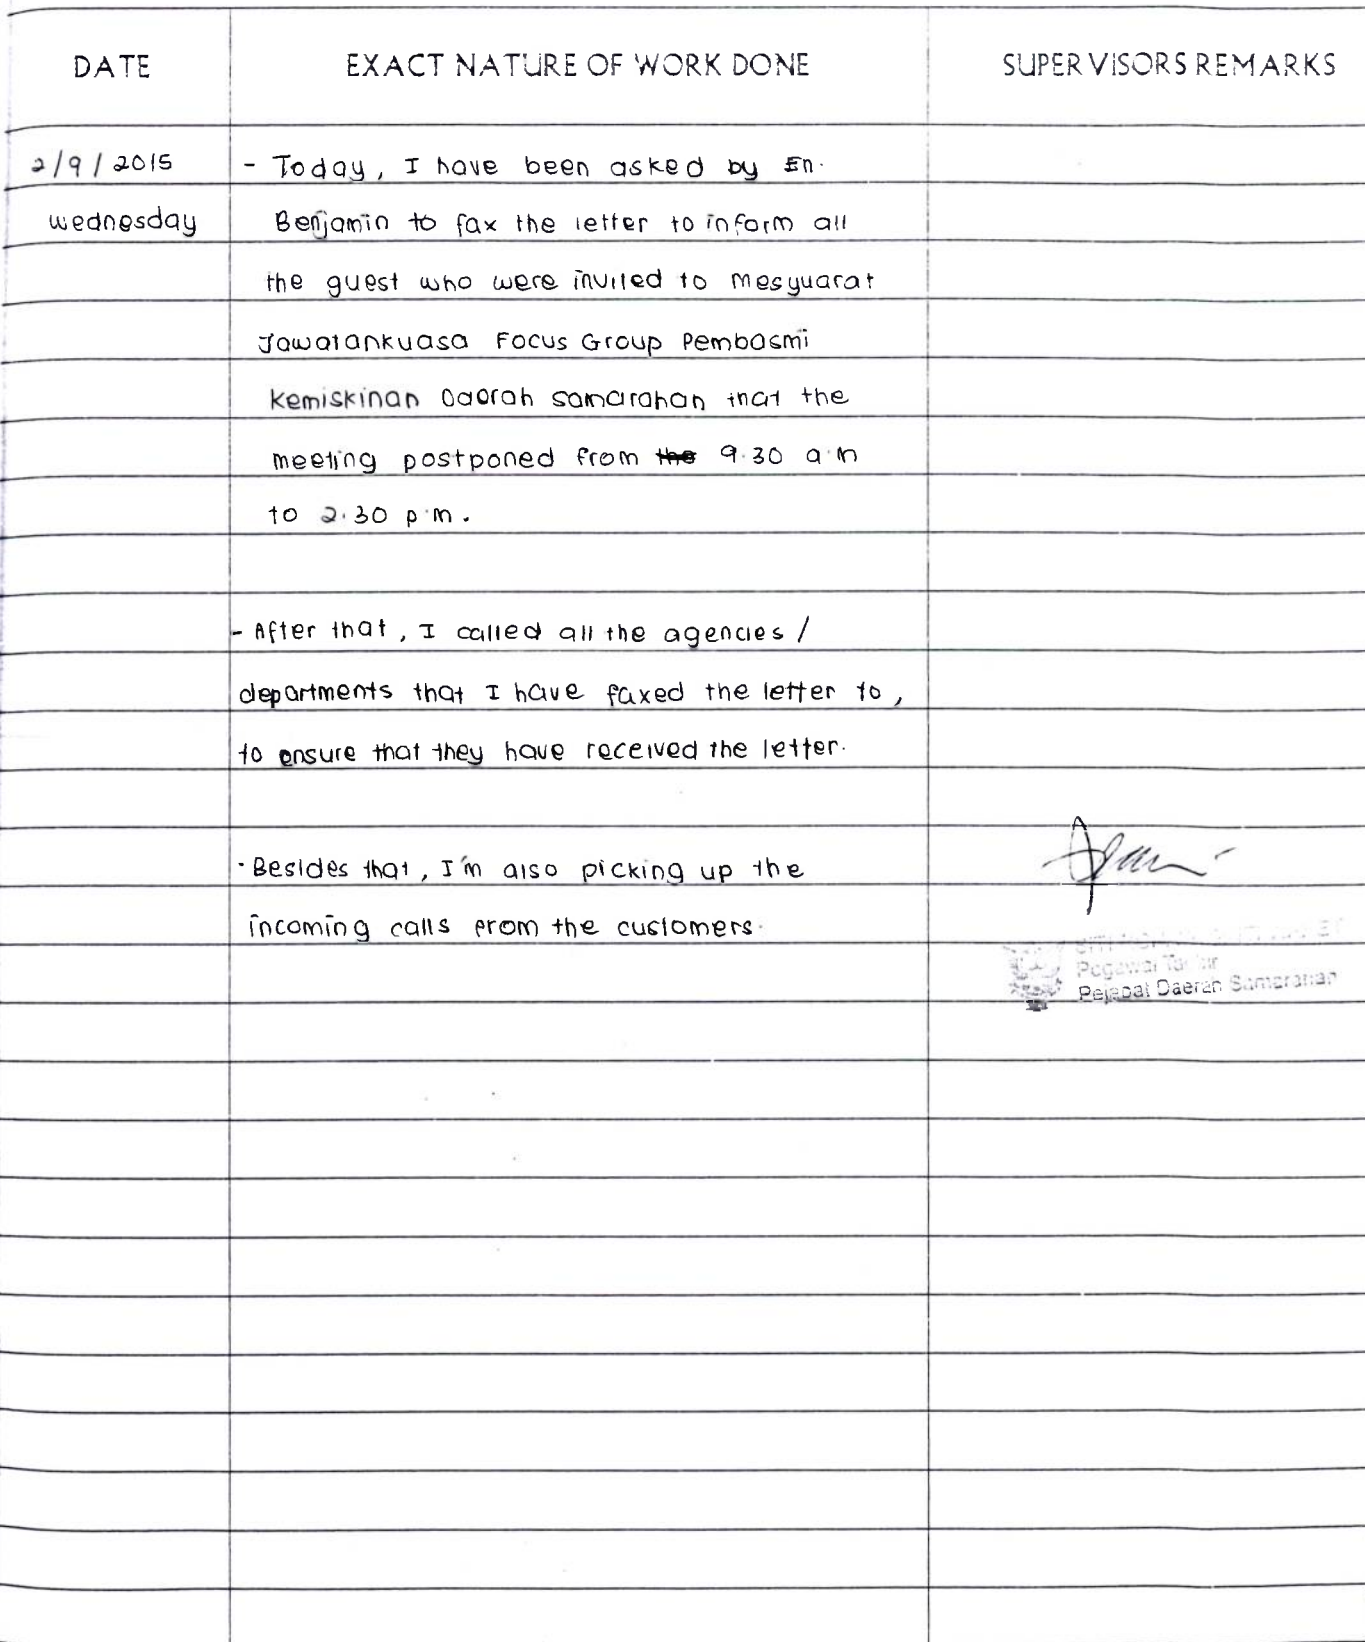 DATE EXACT NATURE OF WORK DONE SUPERVISORS REMARKS
2/9/2015 - Today, I have been asked by En.
wednesday Benjamin to fax the letter to inform all
the guest who were invited to Mesyuarat
Jawatankuasa Focus Group Pembasmi
Kemiskinan Daerah Samarahan that the
meeting postponed from the 9.30 a.m
to 2.30 p.m.
- After that, I called all the agencies/
departments that I have faxed the letter to,
to ensure that they have received the letter.
- Besides that, I'm also picking up the
incoming calls from the customers.
Pegawai Tadbir
Pejabat Daerah Samarahan